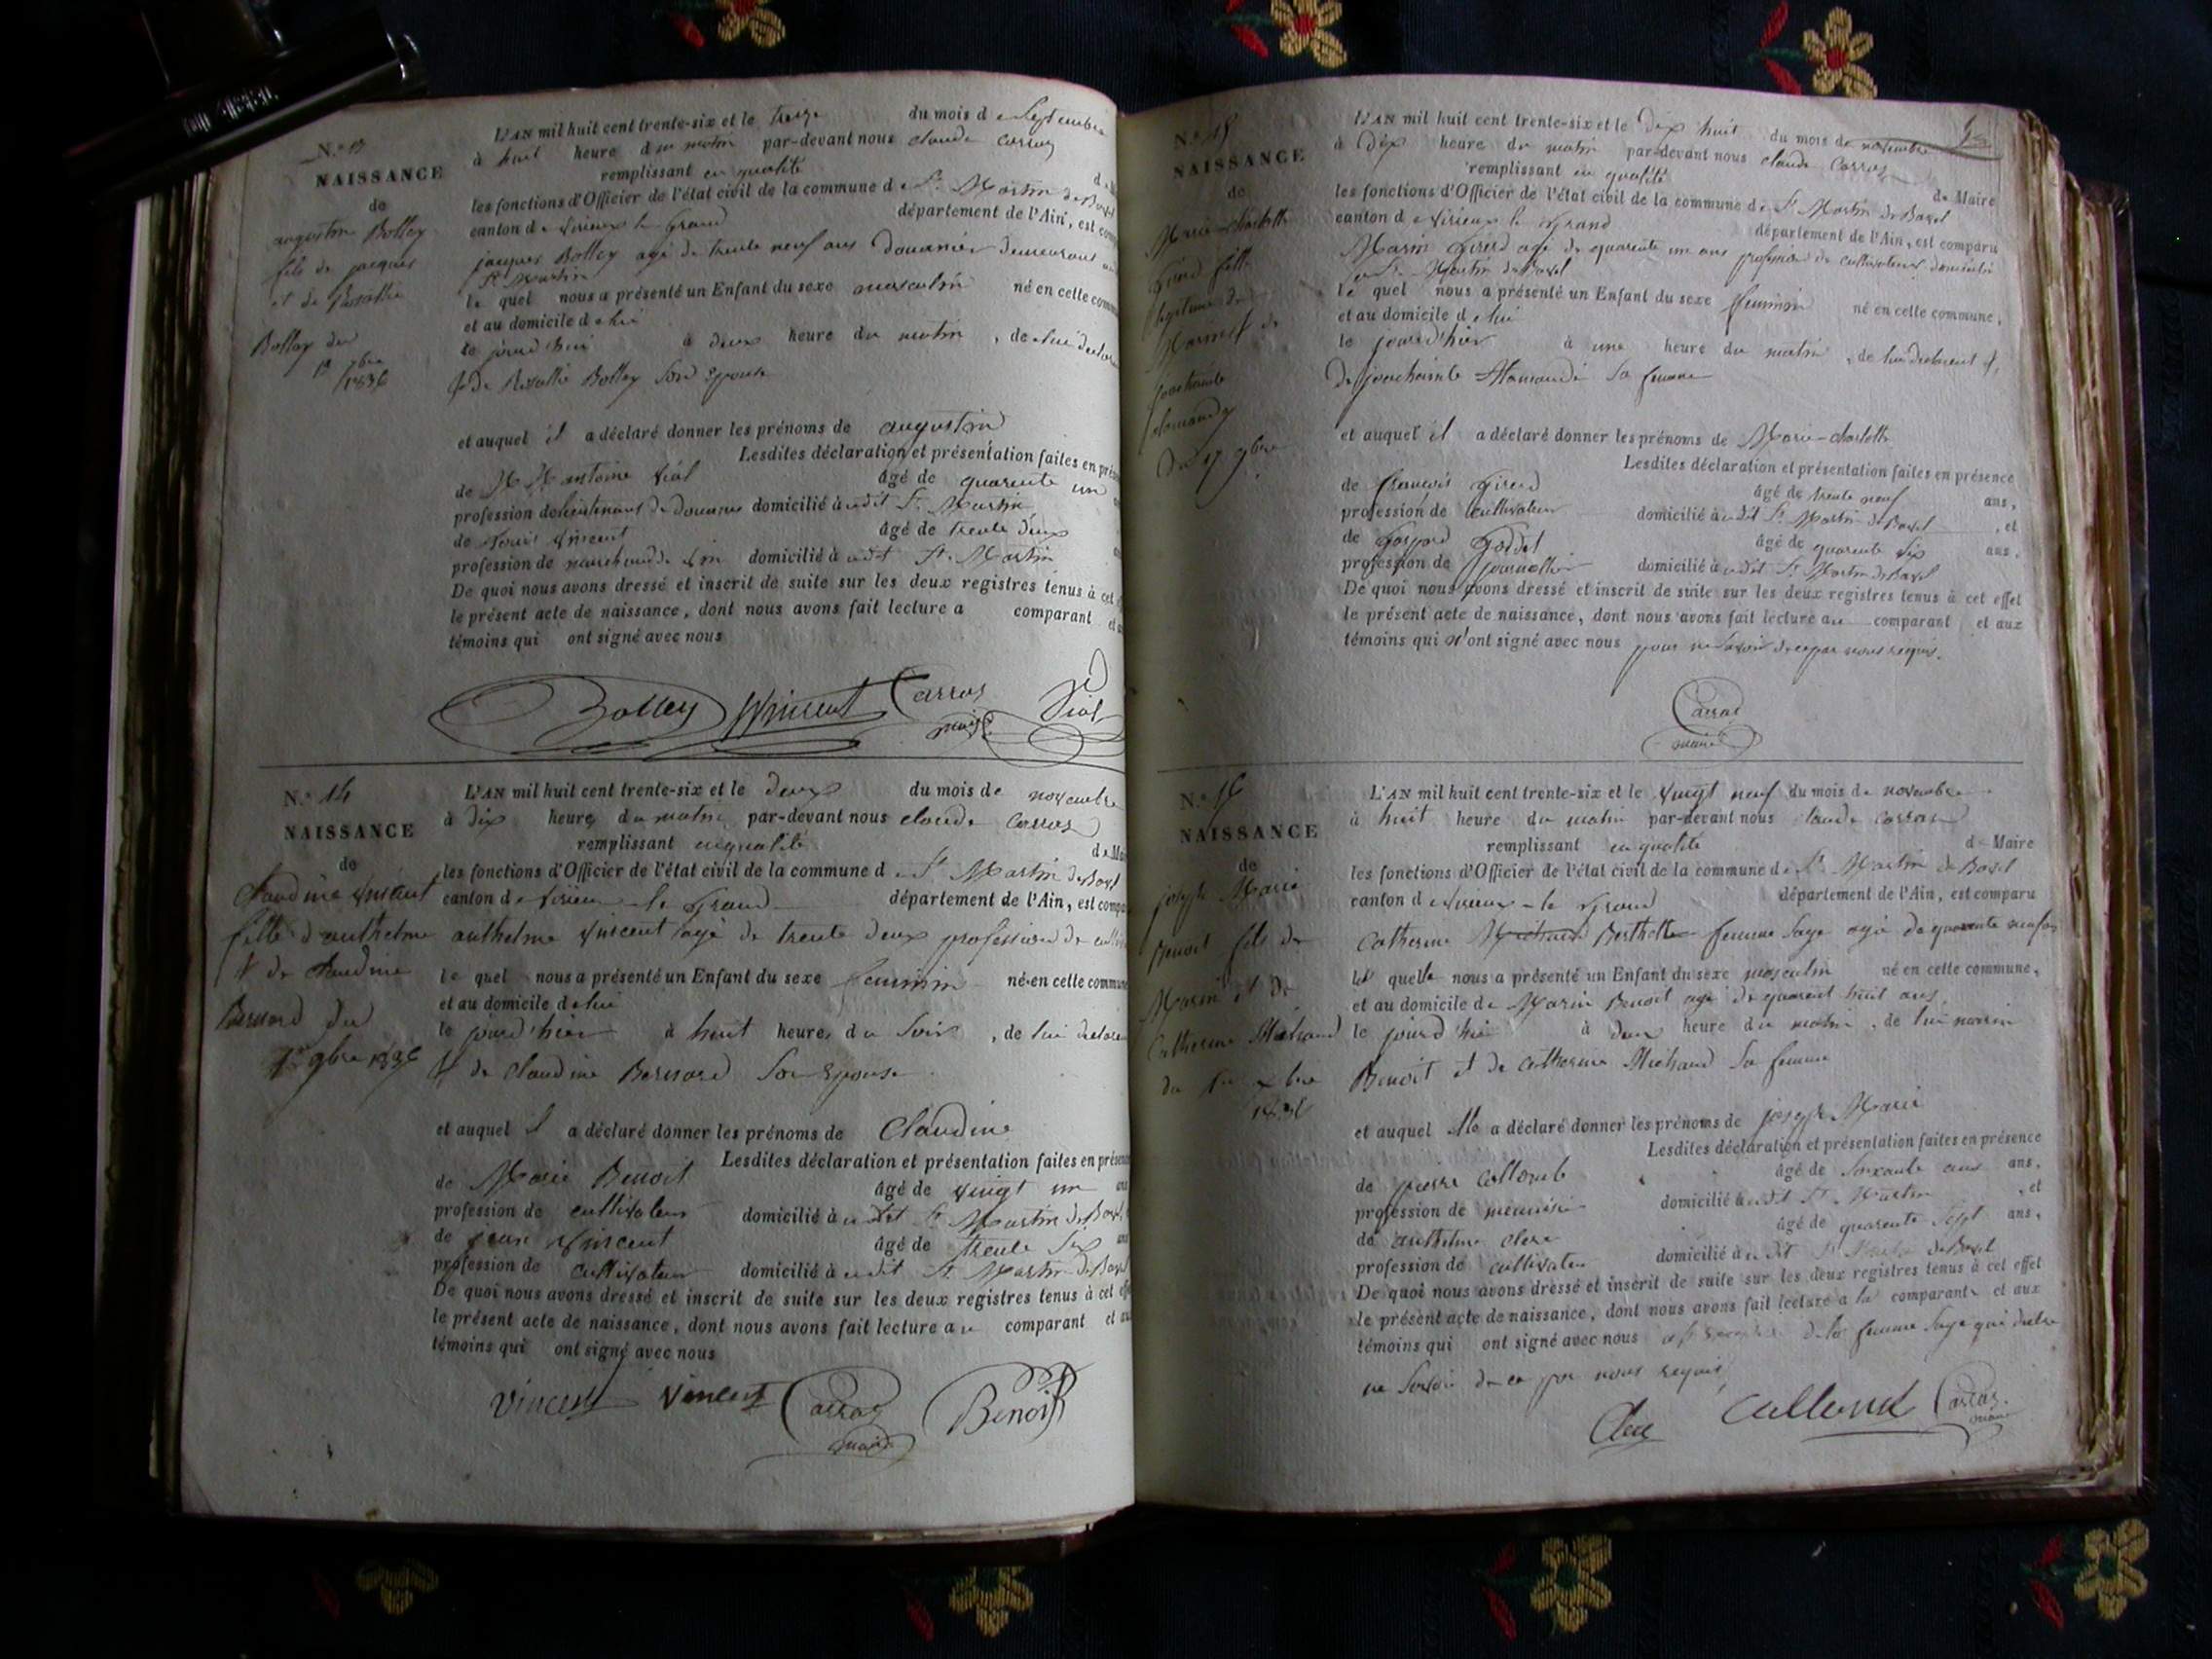 N.º 13
NAISSANCE
de
augustin Bolley
fils de jacques
et de Rosallie
Bolley du
13 7bre
1836
L'AN mil huit cent trente-six et le treize du mois de Septembre
à huit heure du matin par-devant nous claude Carraz
remplissant en qualité
les fonctions d'Officier de l'état civil de la commune de St Martin de Bavel
canton de virieux le Grand département de l'Ain, est comp
jacques Bolley agé de trente neuf ans Douanier demeurant
St Martin
le quel nous a présenté un Enfant du sexe masculin né en cette comm
et au domicile de lui
le jourd'hui à deux heure du matin, de lui declar
et de Rosallie Bolley son Epouse
et auquel il a déclaré donner les prénoms de augustin
Lesdites déclaration et présentation faites en prés
de antoine Vial âgé de quarente un
profession de lieutenant de Douanes domicilié à udit St Martin
de Louis Vincent âgé de trente deux
profession de marchand de vin domicilié à udit St Martin
De quoi nous avons dressé et inscrit de suite sur les deux registres tenus à cet
le présent acte de naissance, dont nous avons fait lecture a comparant et a
témoins qui ont signé avec nous
Bolley Vincent Carraz Vial
maire
N.º 14
NAISSANCE
de
Claudine Vincent
fille d'anthelme
et de Claudine
Bernard du
1er 9bre 1836
L'AN mil huit cent trente-six et le deux du mois de novembre
à dix heures du matin par-devant nous claude Carraz
remplissant en qualité de Mai
les fonctions d'Officier de l'état civil de la commune de St Martin de Bavel
canton de virieux le Grand département de l'Ain, est compa
anthelme Vincent agé de trente deux profession de culti
le quel nous a présenté un Enfant du sexe feminin né en cette commune
et au domicile de lui
le jourd'hier à huit heures du Soir, de lui declar
et de Claudine Bernard son Epouse
et auquel il a déclaré donner les prénoms de Claudine
Lesdites déclaration et présentation faites en présen
de Marie Benoit âgé de vingt un
profession de cultivateur domicilié à udit St Martin de Bavel
de jean Vincent âgé de trente Six
profession de cultivateur domicilié à udit St Martin de Bavel
De quoi nous avons dressé et inscrit de suite sur les deux registres tenus à cet eff
le présent acte de naissance, dont nous avons fait lecture au comparant et au
témoins qui ont signé avec nous
Vincent Vincent Carraz Benoit
maire
N.º 15
NAISSANCE
de
Marie-charlotte
Girod fille
legitime de
Marin et de
joachainte
alamande
du 17 9bre
L'AN mil huit cent trente-six et le dix huit du mois de novembre
à Dix heure du matin par-devant nous claude Carraz
remplissant en qualité de Maire
les fonctions d'Officier de l'état civil de la commune de St Martin de Bavel
canton de virieux le Grand département de l'Ain, est comparu
Marin Girod agé de quarente un ans profession de cultivateur domicilié
à St Martin de Bavel
le quel nous a présenté un Enfant du sexe feminin né en cette commune,
et au domicile de lui
le jourd'hier à une heure du matin, de lui declarent et,
de joachainte Alamande sa femme
et auquel il a déclaré donner les prénoms de Marie-charlotte
Lesdites déclaration et présentation faites en présence
de francois Girod âgé de trente neuf ans,
profession de cultivateur domicilié à udit St Martin de Bavel, et
de Gaspard Goddet âgé de quarente Six ans,
profession de journallier domicilié à udit St Martin de Bavel
De quoi nous avons dressé et inscrit de suite sur les deux registres tenus à cet effet
le présent acte de naissance, dont nous avons fait lecture au comparant et aux
témoins qui n'ont signé avec nous pour ne Savoir de ce par nous requis.
Carraz
maire
N.º 16
NAISSANCE
de
joseph Marie
Benoit fils de
Marin et de
Catherine Michaud
du
1836
L'AN mil huit cent trente-six et le vingt neuf du mois de novembre
à huit heure du matin par-devant nous claude Carraz
remplissant en qualité de Maire
les fonctions d'Officier de l'état civil de la commune de St Martin de Bavel
canton de virieux-le Grand département de l'Ain, est comparu
Catherine Michaud Berthette femme Sage agé de quarente neuf ans
la quelle nous a présenté un Enfant du sexe masculin né en cette commune,
et au domicile de Marin Benoit agé de quarent huit ans,
le jourd'hui à deux heure du matin, de lui marin
Benoit et de catherine Michaud Sa femme
et auquel elle a déclaré donner les prénoms de joseph Marie
Lesdites déclaration et présentation faites en présence
de pierre Collomb âgé de soixante ans ans,
profession de menuisier domicilié à udit St Martin, et
de anthelme clerc âgé de quarente Sept ans,
profession de cultivateur domicilié à udit St Martin de Bavel
De quoi nous avons dressé et inscrit de suite sur les deux registres tenus à cet effet
le présent acte de naissance, dont nous avons fait lecture a la comparante et aux
témoins qui ont signé avec nous de la femme Sage qui
ne Savoir de ce par nous requis
Clerc Carraz
maire